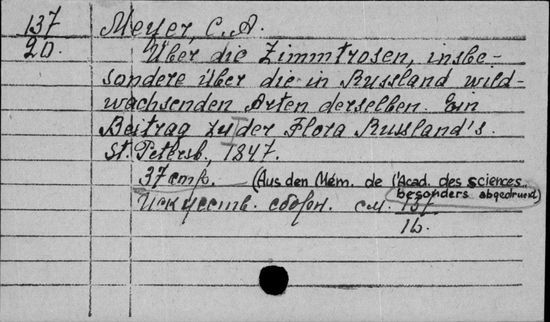 137 Meyer, C. A.
20. Über die Zimmtrosen, insbe-
sondere über die in Russland wild-
wachsenden Arten derselben. Ein
Beitrag zu der Flora Russland's.
St. Petersb., 1847.
37 стр. (Aus den Mém. de l'Acad. des sciences
besonders abgedruckt)
Искусств. собран. см. 137
16.